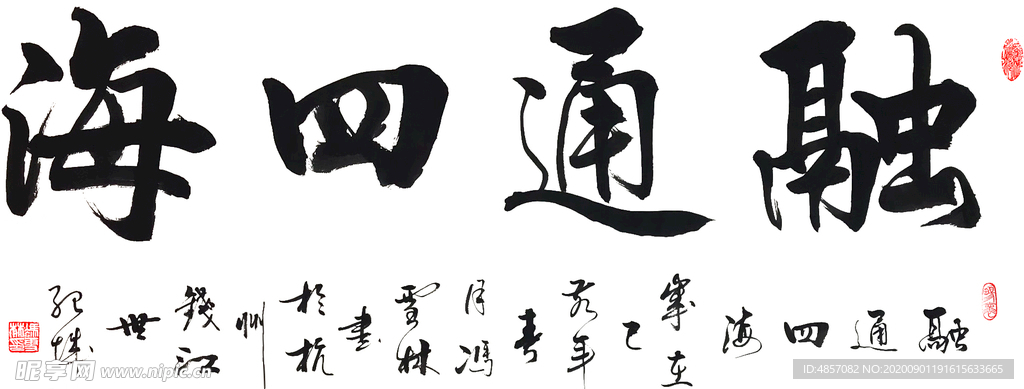 融通四海
融通四海
岁在
己
亥年
春
月冯
雪林
书
於杭
州
钱江
世
纪城
昵享网 www.nipic.cn
ID:4857082 NO:20200901191615633665